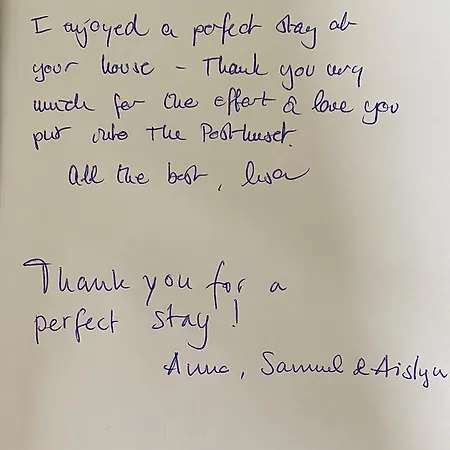 I enjoyed a perfect stay at
your house - Thank you very
much for the effort & love you
put into The Posthuset.
All the best, Lisa
Thank you for a
perfect stay!
Anna, Samuel & Aislyn